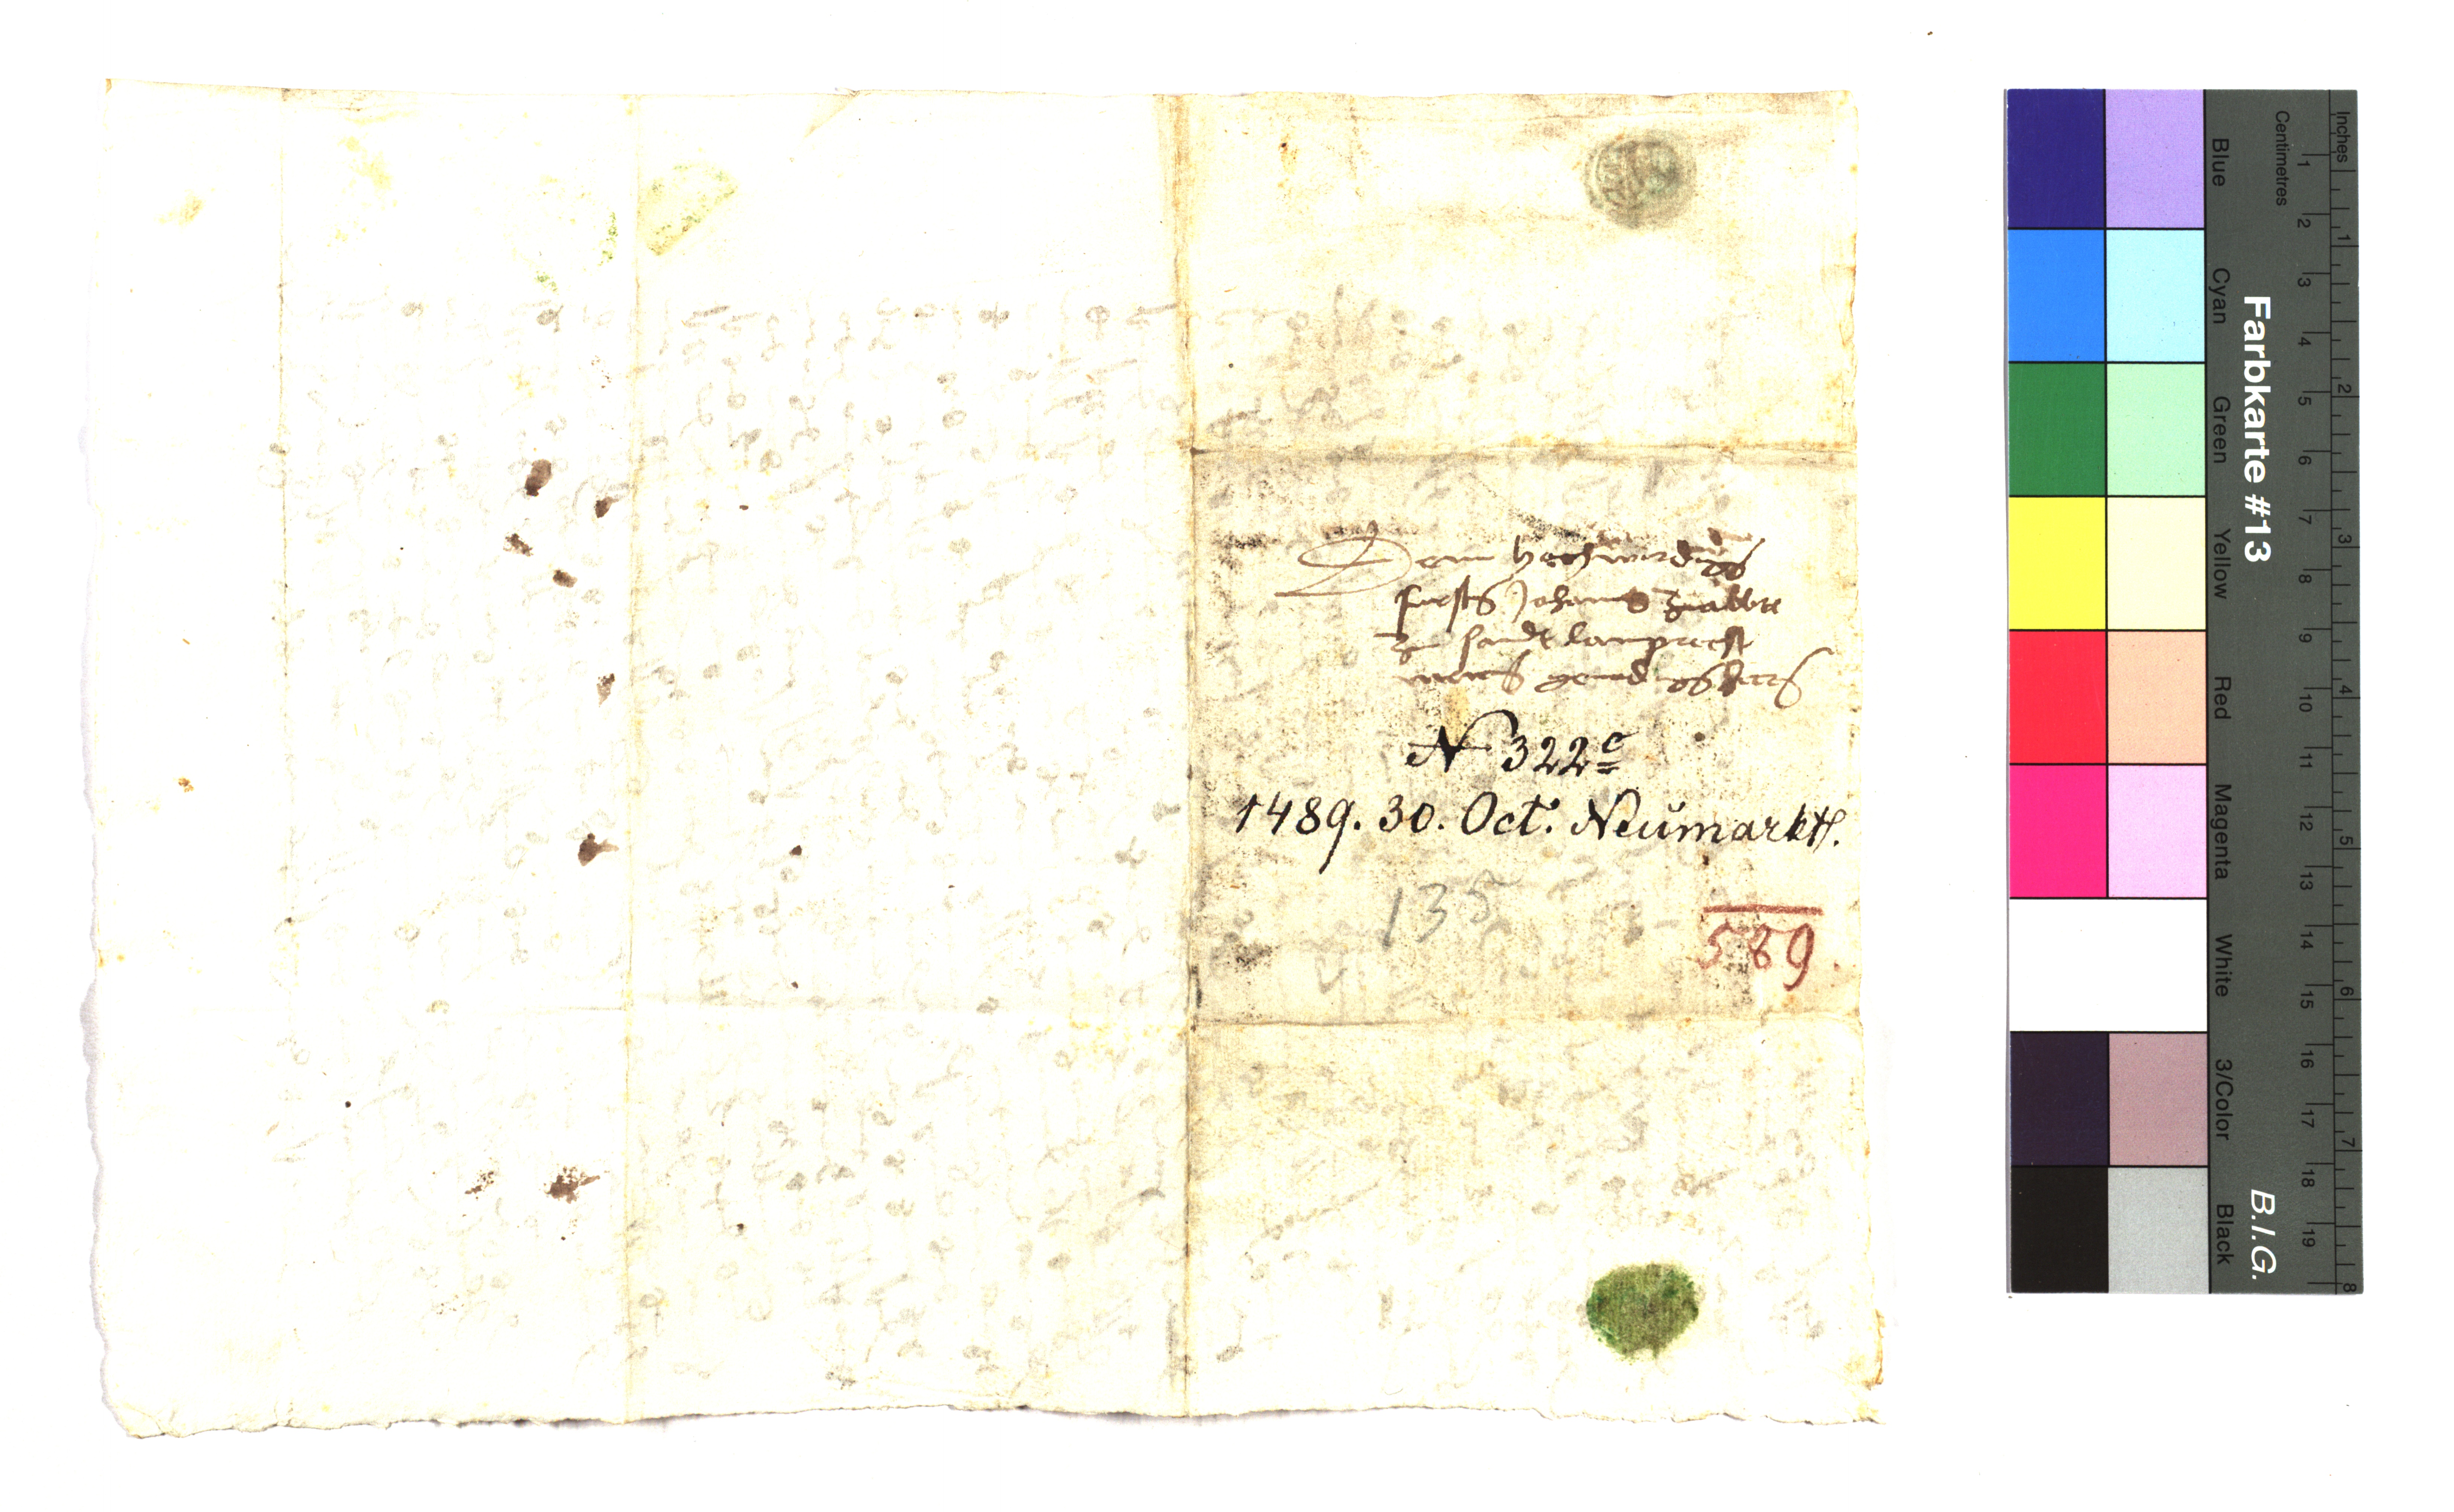 Dem hochwirdigen
fursten Johannes zu abbte
zu sandt lamprecht
meinen genedigs herrn
N 322c
1489. 30. Oct. Neumarktl.
135
589.
Farbkarte #13
B.I.G.
Inches
Centimetres
1 2 3 4 5 6 7 8 9 10 11 12 13 14 15 16 17 18 19
1 2 3 4 5 6 7 8
Blue
Cyan
Green
Yellow
Red
Magenta
White
3/Color
Black